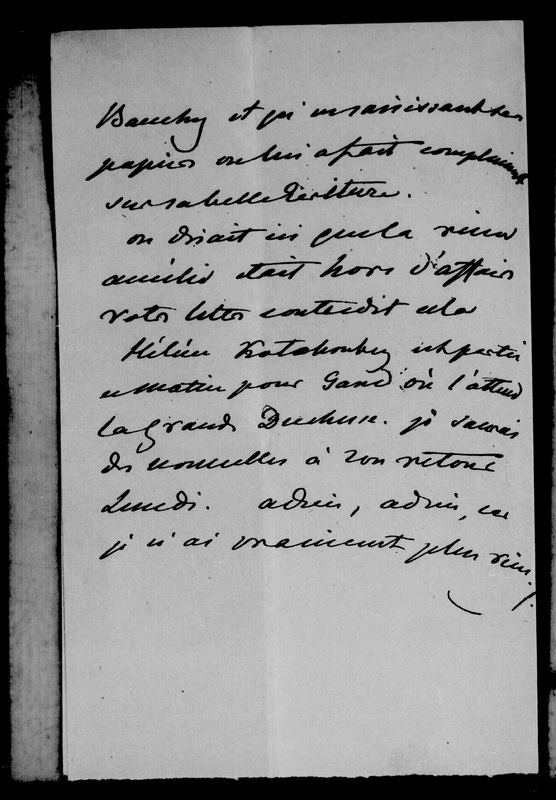 Bauchy et qui en saisissant ses
papiers on lui a fait compliment
sur sa belle écriture.
on disait ici que la reine
amélie était hors d'affaire
votre lettre contredit cela
Hélène Kotchoubey est partie
ce matin pour Gand où l'attend
la Grande Duchesse. je saurai
des nouvelles à son retour
Lundi. adieu, adieu, car
je n'ai vraiment plus rien.